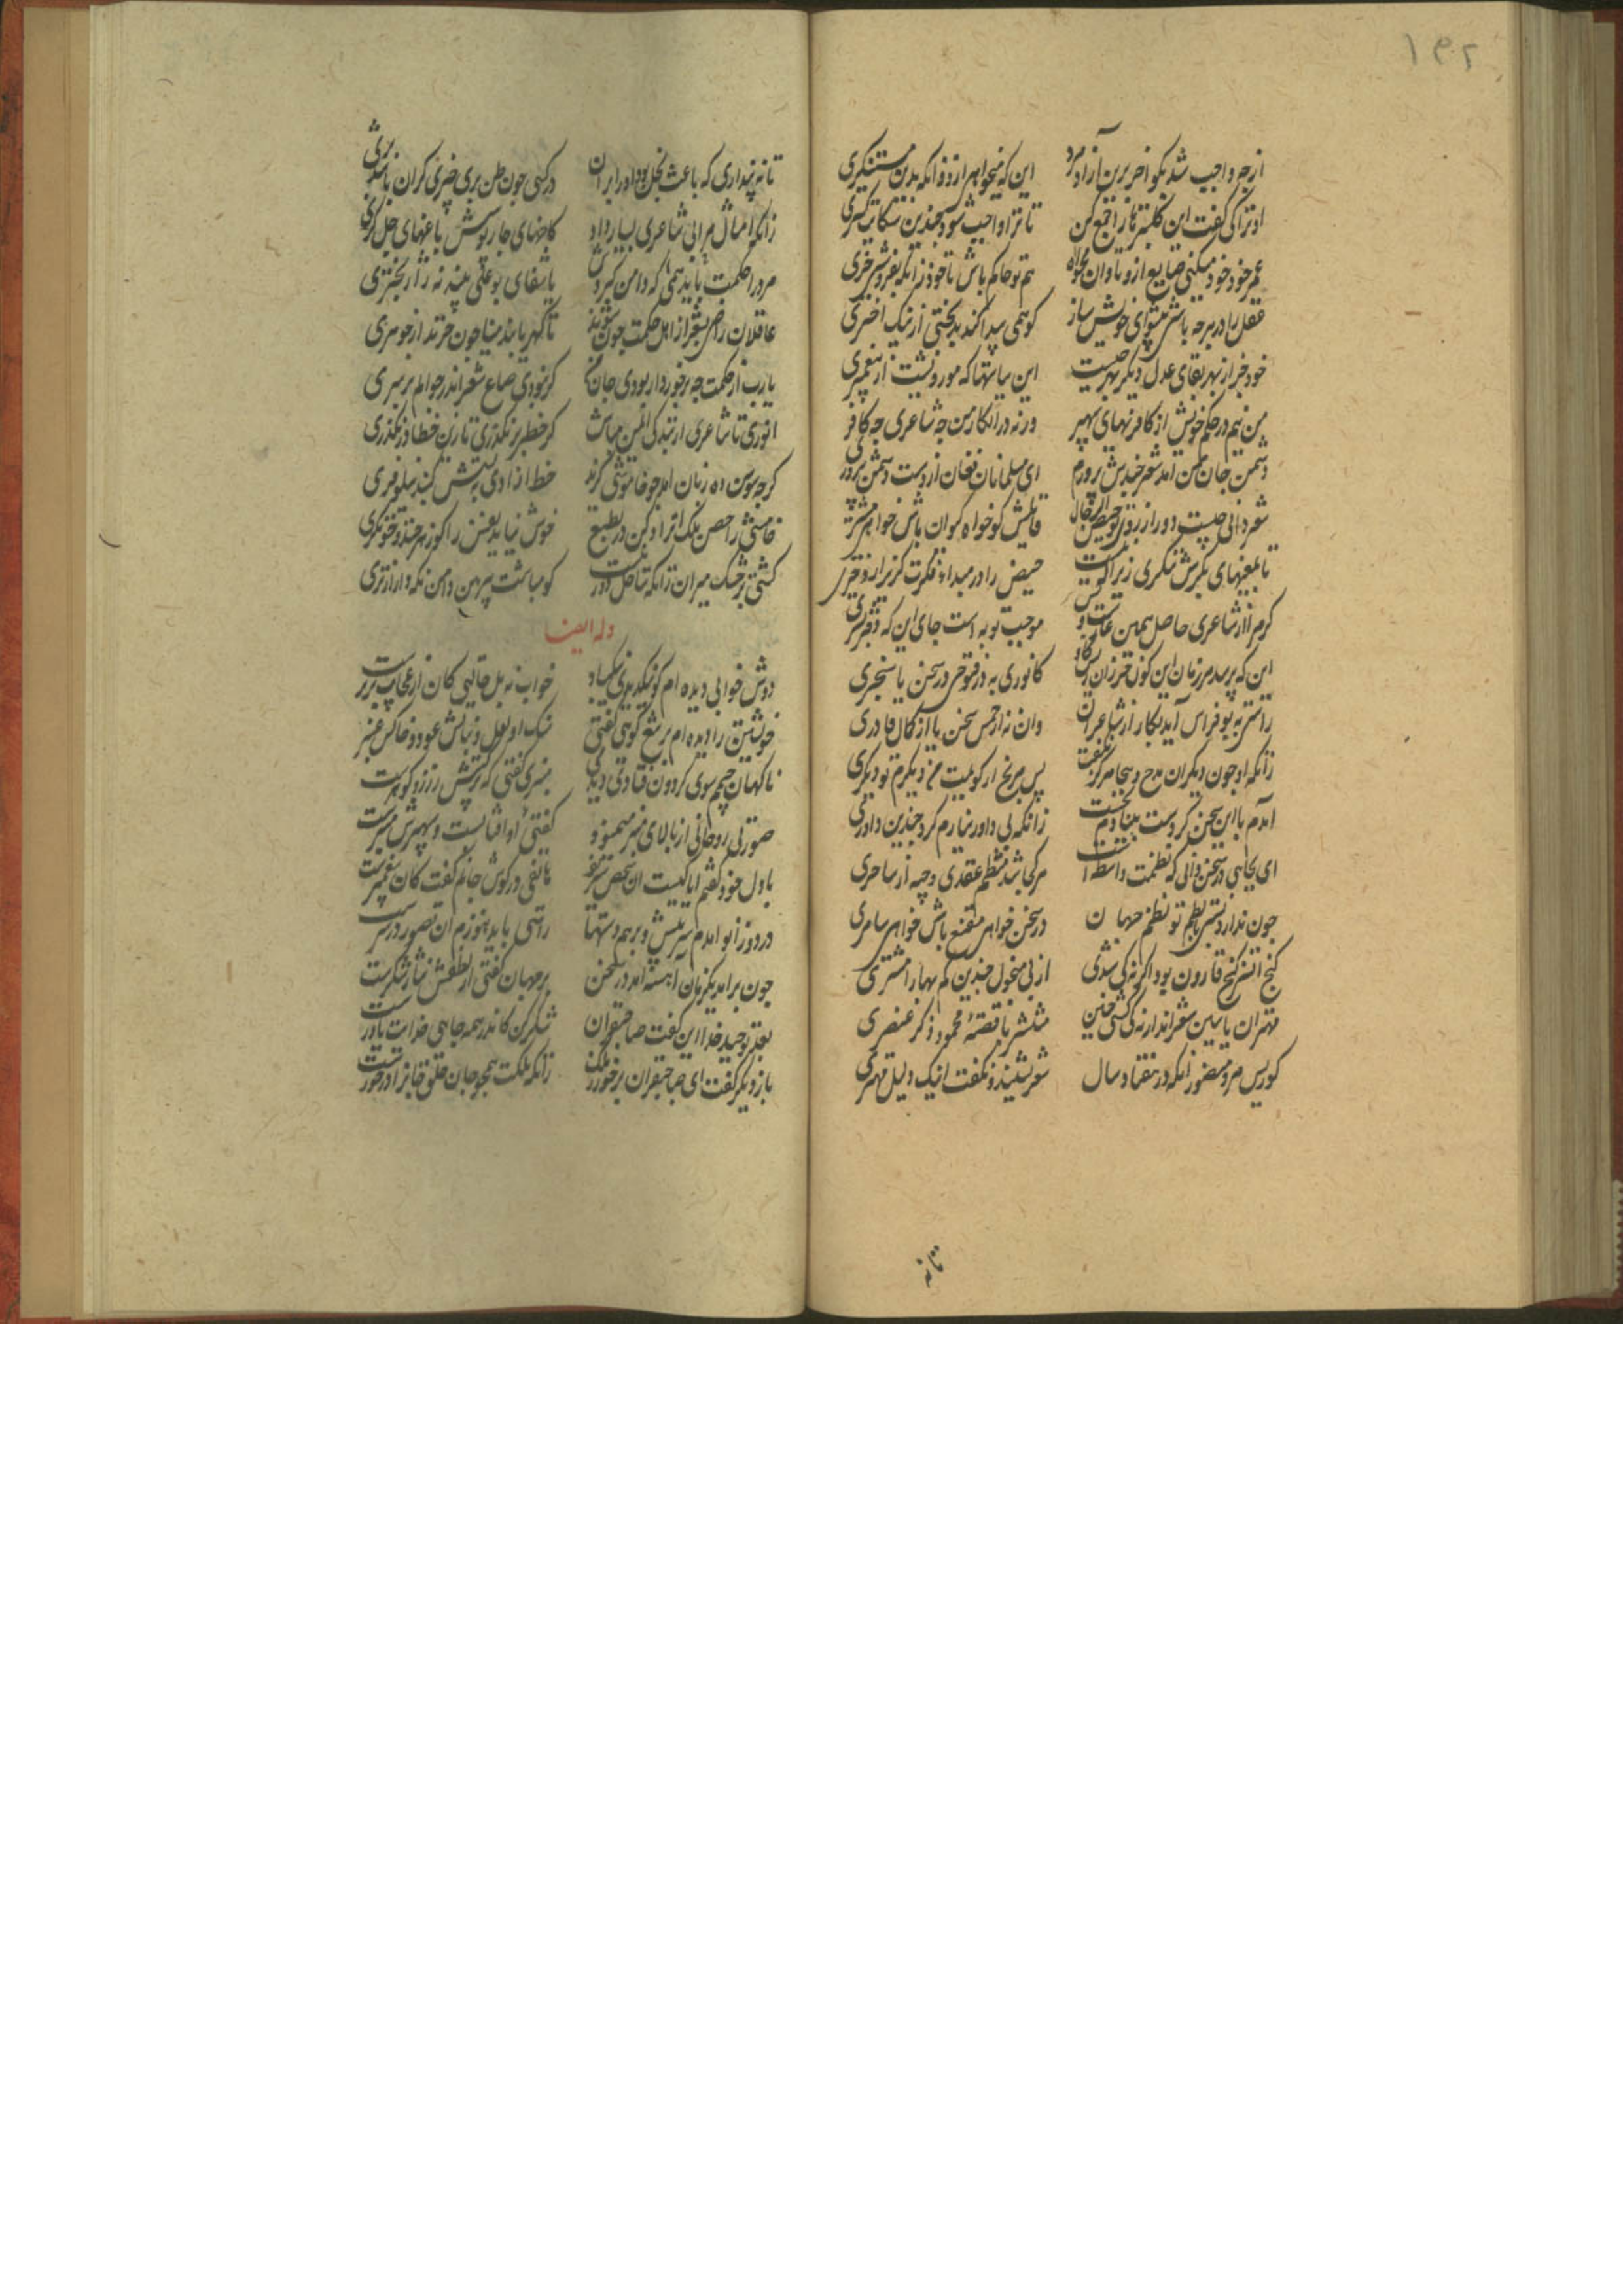 ۱۴۲
از چه واجب شد بکو اخر برین ازاد مرد این که میخواهی ازو وانکه بدین مستنکری
او ترا کی گفت این کلپترها را جمع کن تا ترا واجب شود چندین شکایت کستری
عمر خود خود میکنی ضایع ازو تاوان مخواه هم تو حاکم باش تا خود زانکه بفروشد خری
عقل را در هر چه باشی پیشوای خویش ساز کو همی پیدا کند بدبختی از نیک اختری
خود جز از بهر بقای عدل دیگر بهر چیست این سیاستها که موروثست از پیغمبری
من نیم در حکم خویش از کافریهای سپهر ورنه در انکار من چه شاعری چه کافری
دشمن جان من امد شعر چندش پرورم ای مسلمانان فغان از دست دشمن پروری
شعر دانی چیست دور از روی تو حیض الرجال قایلش کو خواه کیوان باش خواهی مشتری
تا بمعنیهای بکرش ننکری زیرا که نیست حیض را در مبداء فکرت کزیر از دختری
کر مرا از شاعری حاصل همین عارست و بس موجب توبه است جای این که دفتر بستری
این که پرسد هر زمان این کون خر زان ریش کاو کانوری به در فتوحی در سخن یا سنجری
راستی به بوفراس آید بکار از شاعران وان نه از جنس سخن یا از کمال قادری
زانکه او چون دیکران مدح و هجا هرکز نکفت پس مرنج ار کویمت من دیکرم تو دیکری
آمدم با این سخن کز دست بنهادم نخست زانکه بی داور نیارم کرد چندین داوری
ای بجایی در سخن دانی که نظمت واسطه است هر کجا شد منتظم عقدی و چه از ساحری
چون ندارد نسبتی نظم تو با نظم جهان در سخن خواهی مقنع باش خواهی سامری
کنج اتسز کنج قارون بود اکر نه کی شدی از یی منحول چندین کم بها را مشتری
مهتران با شین شعراند ارنه کی کشتی چنین منتشر با قصهٔ محمود ذکر عنصری
کو رییس مرو منصور انکه در هفتاد سال شعر نشنید و نکفت اینک دلیل مهتری
تا نه
تا نه پنداری که باعث بخل بود او را بران در کسی چون ظن بری چیزی کزان باشد بری
زانکه امثال مرا بی شاعری بسیار داد کاخهای چار پوشش باغهای چل کری
مرد را حکمت همی باید که دامن کیردش یا شفای بوعلی بیند نه ژاژ بحتری
عاقلان راضی بشعر از اهل حکمت چون شوند تا کهر یابند مینا چون خرند از جوهری
یارب از حکمت چه برخوردار بودی جان من کر نبودی صاع شعر اندر جوالم بر سری
انوری تا شاعری از بندکی ایمن مباش کز خطر در نکذری تا زین خطا در نکذری
کر چه سوسن ده زبان امد چو خاموشی کزید خط ازادی نبشتش کنبد نیلوفری
خامشی را حصن ملک انزوا کن ور بطبع خوش نیاید نفس را کو زهر خند و خون کری
کشتی بر خشک میران زانکه ساحل دور نیست کو مباشت پیرهن دامن نکه دار از تری
وله ایضا
دوش خوابی دیده ام کو نیک دیدی نیک باد خواب نه بل حالتی کان از عجایب برترست
خویشتن را دیده ام بر تیغ کوهی کفتیی سنک او لعل و نباتش عود و خاکش عنبرست
ناکهان چشمم سوی کردون فتادی دیدمی منبری کفتی که ترکیبش ز زر و کوهرست
صورتی روحانی از بالای منبر مینمود کفتیی او افتابست و سپهرش منبرست
با دل خود کفتم ایا کیست ان شخص شریف هاتفی در کوش جانم کفت کان پیغمبرست
در دو زانو امدم سر پیش و بر هم دستها راستی باید هنوزم ان تصور در سرست
چون برامد یکزمان اهسته امد در سخن بر جهان کفتی از نطقش نثار شکرست
بعد توحید خدا این کفت صاحبقران شکر کن کاندر همه جایی خدایت یاورست
باز دیکر کفت ای صاحبقران بر خور ز ملک زانکه ملکت همچو جان خلق جانرا درخورست